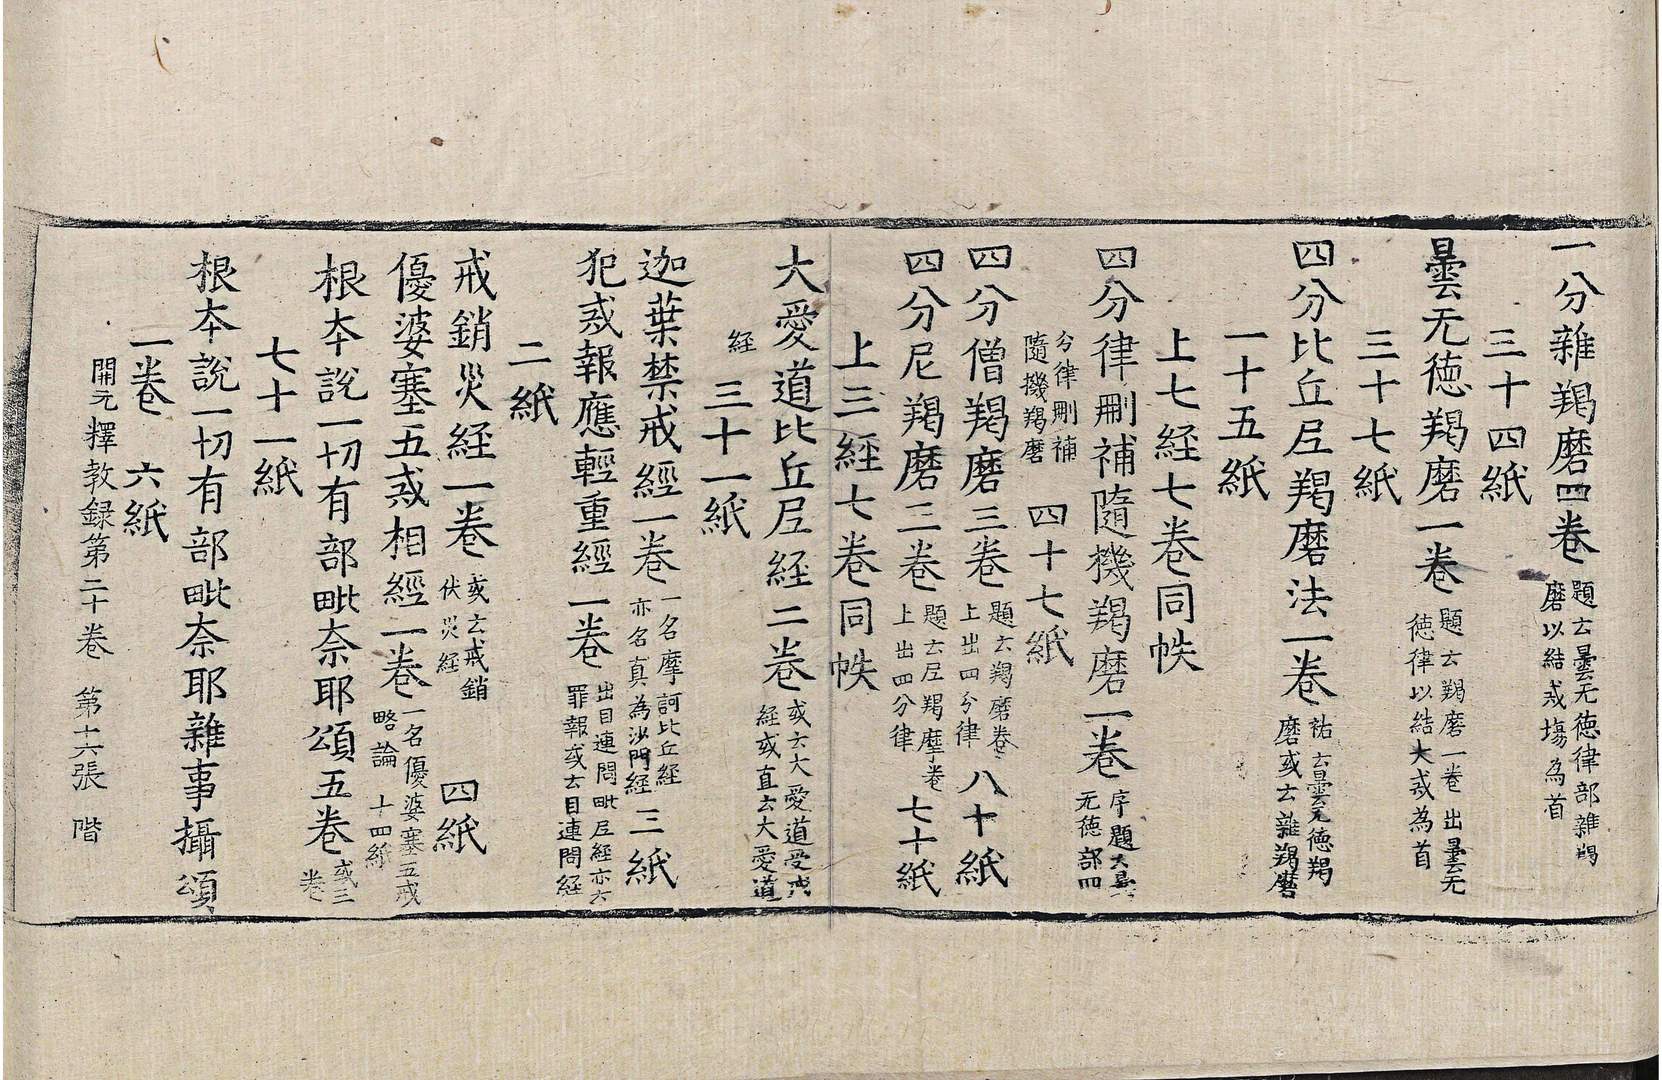 一分雜羯磨四卷題云曇无德律部雜羯
磨以結戒場為首
三十四紙
曇无德羯磨一卷題云羯磨一卷出曇无
德律以結大戒為首
三十七紙
四分比丘尼羯磨法一卷祐云曇无德羯
磨或云雜羯磨
一十五紙
上七経七卷同帙
四分律刪補隨機羯磨一卷序題云曇
无德部四
分律刪補
隨機羯磨
四十七紙
四分僧羯磨三卷題云羯磨卷
上出四分律
八十紙
四分尼羯磨三卷題云尼羯磨卷
上出四分律
七十紙
上三經七卷同帙
大愛道比丘尼経二卷或云大愛道受戒
経或直云大愛道
経
三十一紙
迦葉禁戒經一卷一名摩訶比丘經
亦名真為沙門經
三紙
犯戒報應輕重經一卷出目連問毗尼經亦云
罪報或云目連問経
二紙
戒銷災経一卷或云戒銷
伏災経
四紙
優婆塞五戒相經一卷一名優婆塞五戒
略論
十四紙
根本說一切有部毗奈耶頌五卷或三
卷
七十一紙
根本說一切有部毗奈耶雜事攝頌
一卷
六紙
開元釋教録第二十卷 第十六張 階